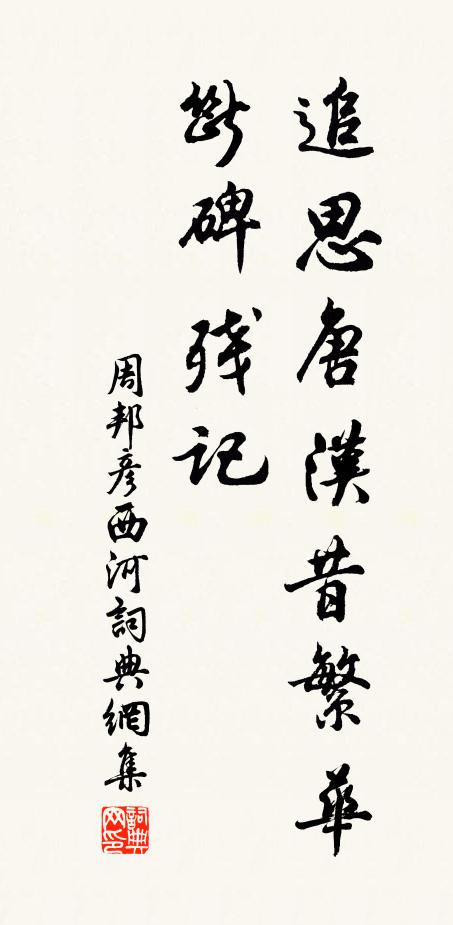 追思唐漢昔繁華
斷碑殘記
周邦彥西河詞典網集
詞典網印